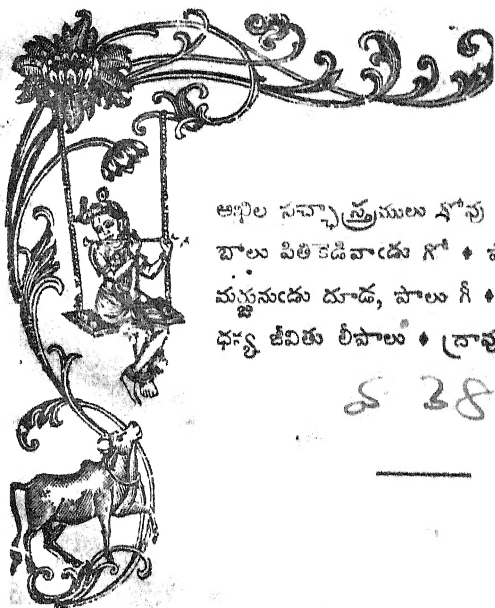 అఖిల సచ్ఛాస్త్రములు గోవు
బాలు పితికెడివాఁడు గో ♦
మర్జునుఁడు దూడ, పాలు గీ ♦
ధన్య జీవితు లీపాలు ♦ ద్రావు
38